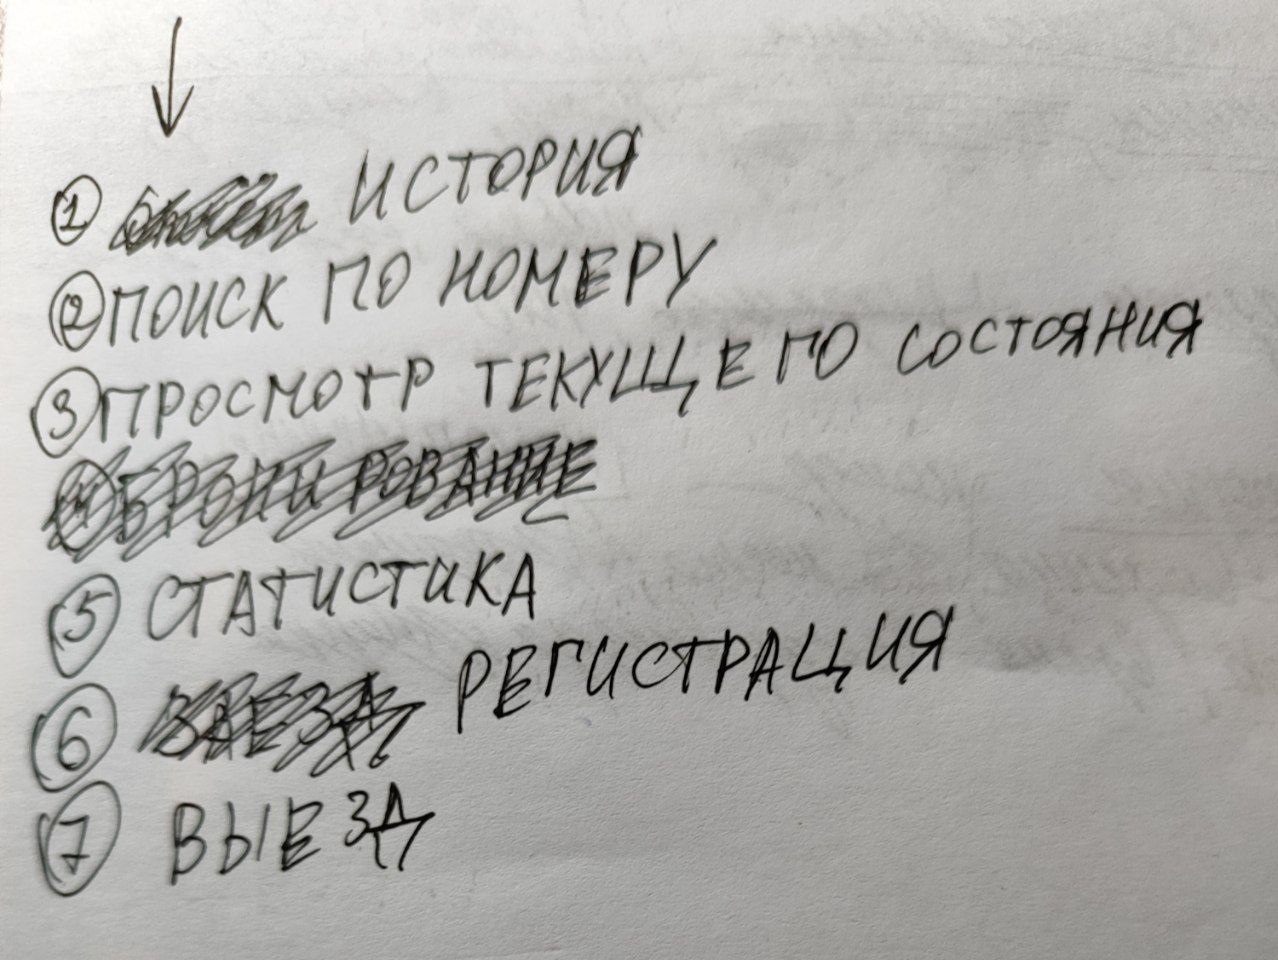 1 ИСТОРИЯ
2 ПОИСК ПО НОМЕРУ
3 ПРОСМОТР ТЕКУЩЕГО СОСТОЯНИЯ
4 БРОНИРОВАНИЕ
5 СТАТИСТИКА
6 ЗАЕЗД РЕГИСТРАЦИЯ
7 ВЫЕЗД